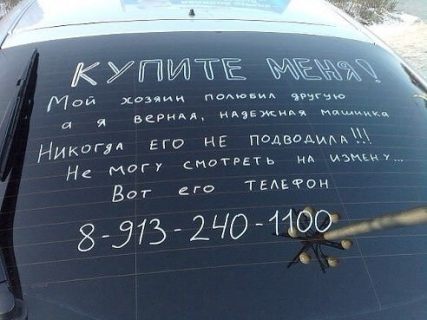 КУПИТЕ МЕНЯ!
Мой хозяин полюбил другую
а я верная, надежная машинка
Никогда его не подводила!!!
Не могу смотреть на измену...
Вот его телефон
8-913-240-1100